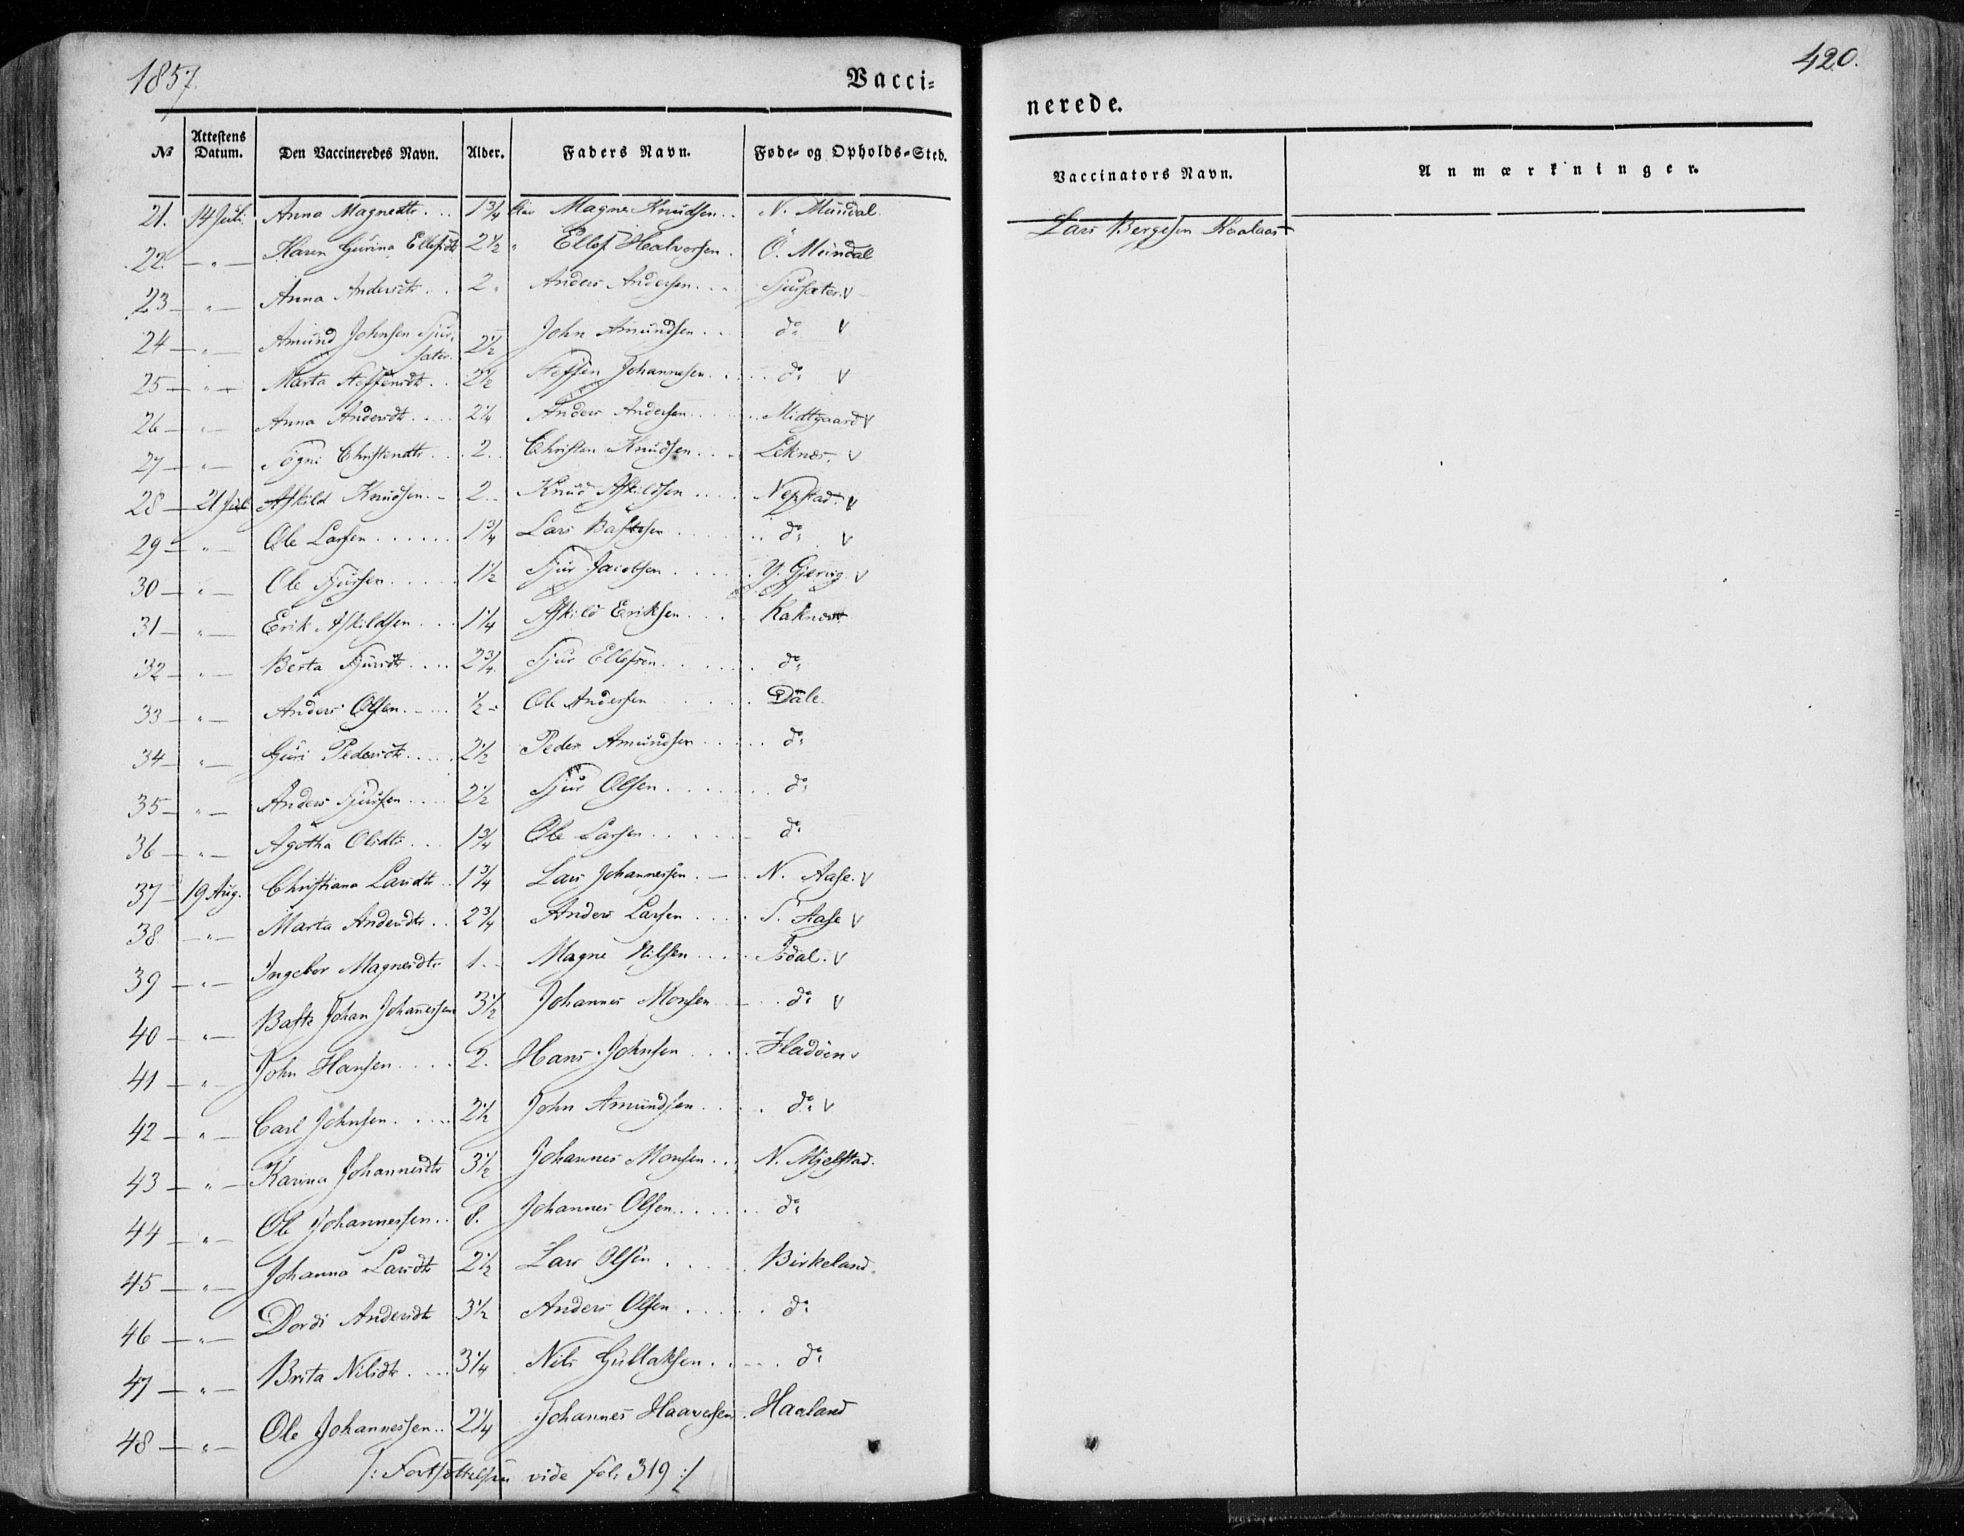 1857.
Vacci-
nerede.
420.
№ Attestens Datum. Den Vaccineredes Navn. Alder. Faders Navn. Føde- og Opholds-Sted. Vaccinators Navn. Anmærkninger.
21. 14 Juli. Anna Magnedtr. 1 3/4 Magne Knudsen N. Mundal. Lars Bergesen Kaalaas
22. — " — Karen Gurina Ellefsdtr 2 1/2 " Ellef Halvorsen. Ö. Mundal
23 — " — Anna Andersdtr. 2. Anders Andersen Tjursæter. v
24 — " — Amund Johnsen Tjur-
sæter. 2 1/2 John Amundsen do v
25 — " — Marta Steffensdt. 2 1/2 Steffen Johannesen do v
26 — " — Anna Andersdtr 2 1/4 Anders Andersen Midtgaard v
27 — " — Sögni Christendtr 2. Christen Knudsen Leknes. v
28 — 21 Jul Askild Knudsen 2 Knud Askildsen Nepstad. v
29 — " — Ole Larsen 1 3/4 Lars do v
30 — " — Ole Tjursen 1 1/2 Tjur Jacobsen Y. Gjervig v
31 — " — Erik Askildsen 1 1/4 Askild Eriksen Kaknes
32 — " — Berta Tjursdtr 2 3/4 Tjur Ellefsen do
33 — " — Anders Olsen 1/2 Ole Andersen Dale.
34 — " — Guri Pedersdtr 2 1/2 Peder Amundsen do
35 — " — Anders Tjursen 2 1/2 Tjur Olsen do
36 — " — Agatha Olsdtr 1 3/4 Ole Larsen do
37 — 19 Aug. Christiana Larsdtr 1 3/4 Lars Johannessen N. Aase. v
38 — " — Marta Andersdtr 2 3/4 Anders Larsen Aase v
39 — " — Ingebor Magnesdtr 1. Magne Nilsen Isdal. v
40 — " — Johan Johannessen 3 1/2 Johannes Monsen do v
41 — " — John Hansen 2. Hans Johnsen Fladöen v
42 — " — Carl Johnsen 2 1/2 John Amundsen do v
43 — " — Karina Johannesdtr 3 1/2 Johannes Monsen N. Mjelstad.
44 — " — Ole Johannessen 8. Johannes Olsen do
45 — " — Johanna Larsdtr 2 1/2 Lars Olsen Birkeland.
46 — " — Dordi Andersdtr 3 1/2 Anders Olsen do
47 — " — Brita Nilsdtr 3 1/4 Nils Gullaksen do
48 — " — Ole Johannessen 2 1/4 Johannes Haaversen Haaland
/: Fortsættelsen vide fol. 319 :/